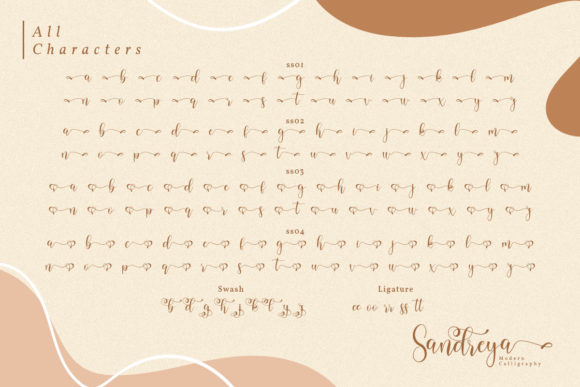 All
Characters
ss01
a b c d e f g h i j k l m
n o p q r s t u v w x y z
ss02
a b c d e f g h i j k l m
n o p q r s t u v w x y z
ss03
a b c d e f g h i j k l m
n o p q r s t u v w x y z
ss04
a b c d e f g h i j k l m
n o p q r s t u v w x y z
Swash Ligature
b d g h j k f y z ee oo rr ss tt
Sandreya
Modern
Calligraphy